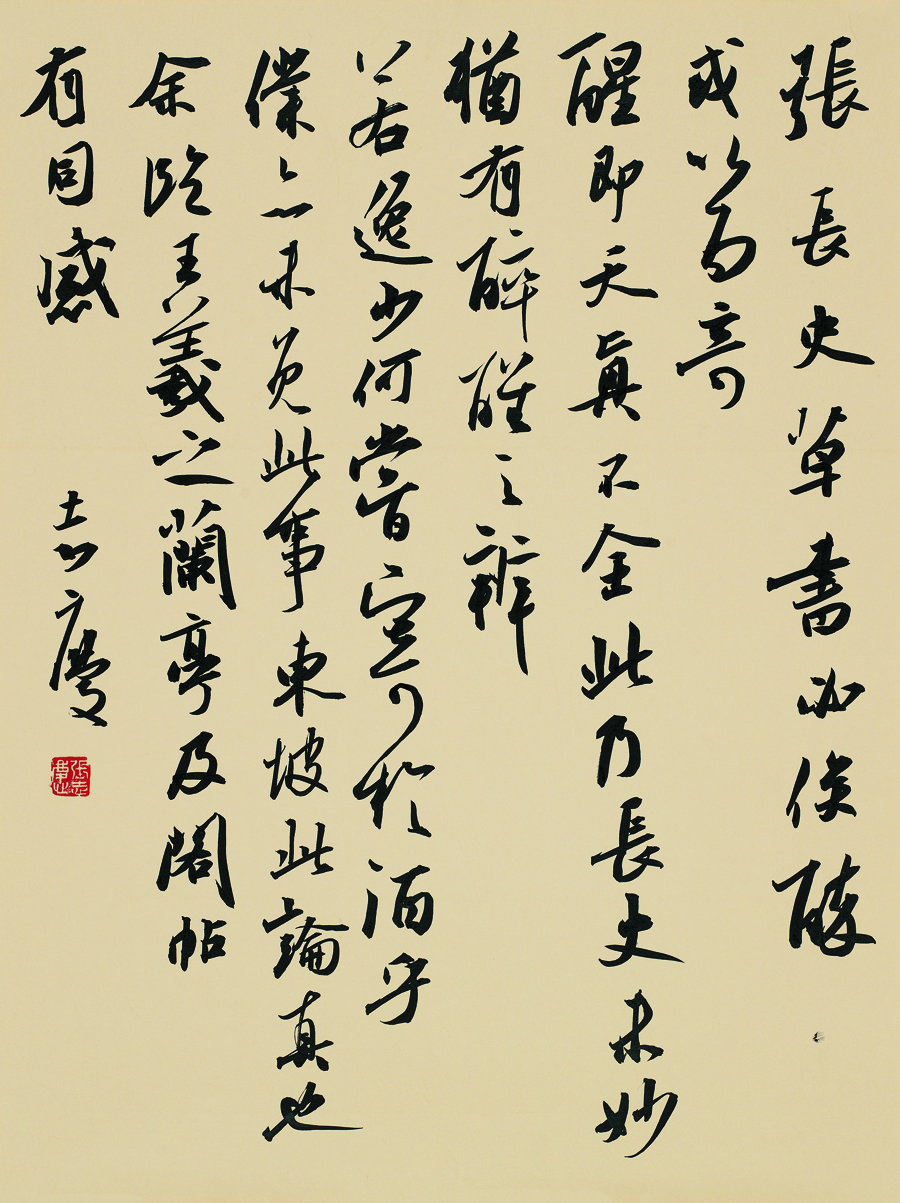 張長史草書必俟醉
或以為奇
醒即天真不全此乃長史未妙
猶有醉醒之辨
若逸少何嘗寄於酒乎
僕亦未免此事東坡此論真也
余臨王羲之蘭亭及閣帖
有同感
志慶